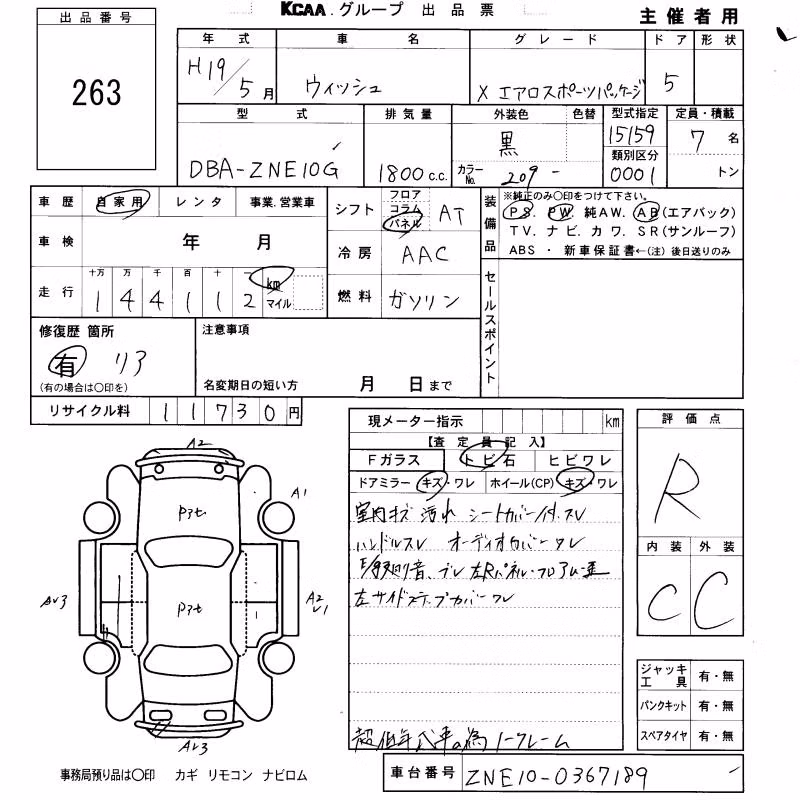 KCAA.グループ 出品票
主催者用
出品番号
263
年式 車名 グレード ドア 形状
H19/5月 ウィッシュ X エアロスポーツパッケージ 5
型式 排気量 外装色 色替 型式指定 定員・積載
DBA-ZNE10G 1800 c.c. 黒 15159 7名
カラーNo. 209 - 類別区分 0001 トン
車歴 自家用 レンタ 事業.営業車
シフト フロア コラム パネル AT
装備品 ※純正のみ○印をつけて下さい。
PS. PW. 純AW. AB(エアバック)
TV. ナビ. カワ. SR(サンルーフ)
ABS ・ 新車保証書←(注) 後日送りのみ
車検 年 月
冷房 AAC
走行 十万 万 千 百 十 一
1 4 4 1 1 2 km マイル
燃料 ガソリン
セールスポイント
修復歴 箇所
有 リア
(有の場合は○印を)
注意事項
名変期日の短い方 月 日まで
リサイクル料 11730円
現メーター指示 km
【査定員記入】
Fガラス トビ石 ヒビワレ
ドアミラー キズ・ワレ ホイール(CP) キズ・ワレ
室内キズ 汚れ シートカバー付.スレ
ハンドルスレ オーディオカバーワレ
異音、ブレ 左Rパネル・フロア
左サイドステップカバーワレ
評価点
R
内装 外装
C C
A2
A1
Pｱｾ
AV3
A2
V1
Pｱｾ
AV3
ジャッキ工具 有・無
パンクキット 有・無
スペアタイヤ 有・無
超低年式車の為ノークレーム
事務局預り品は○印 カギ リモコン ナビロム
車台番号 ZNE10-0367189